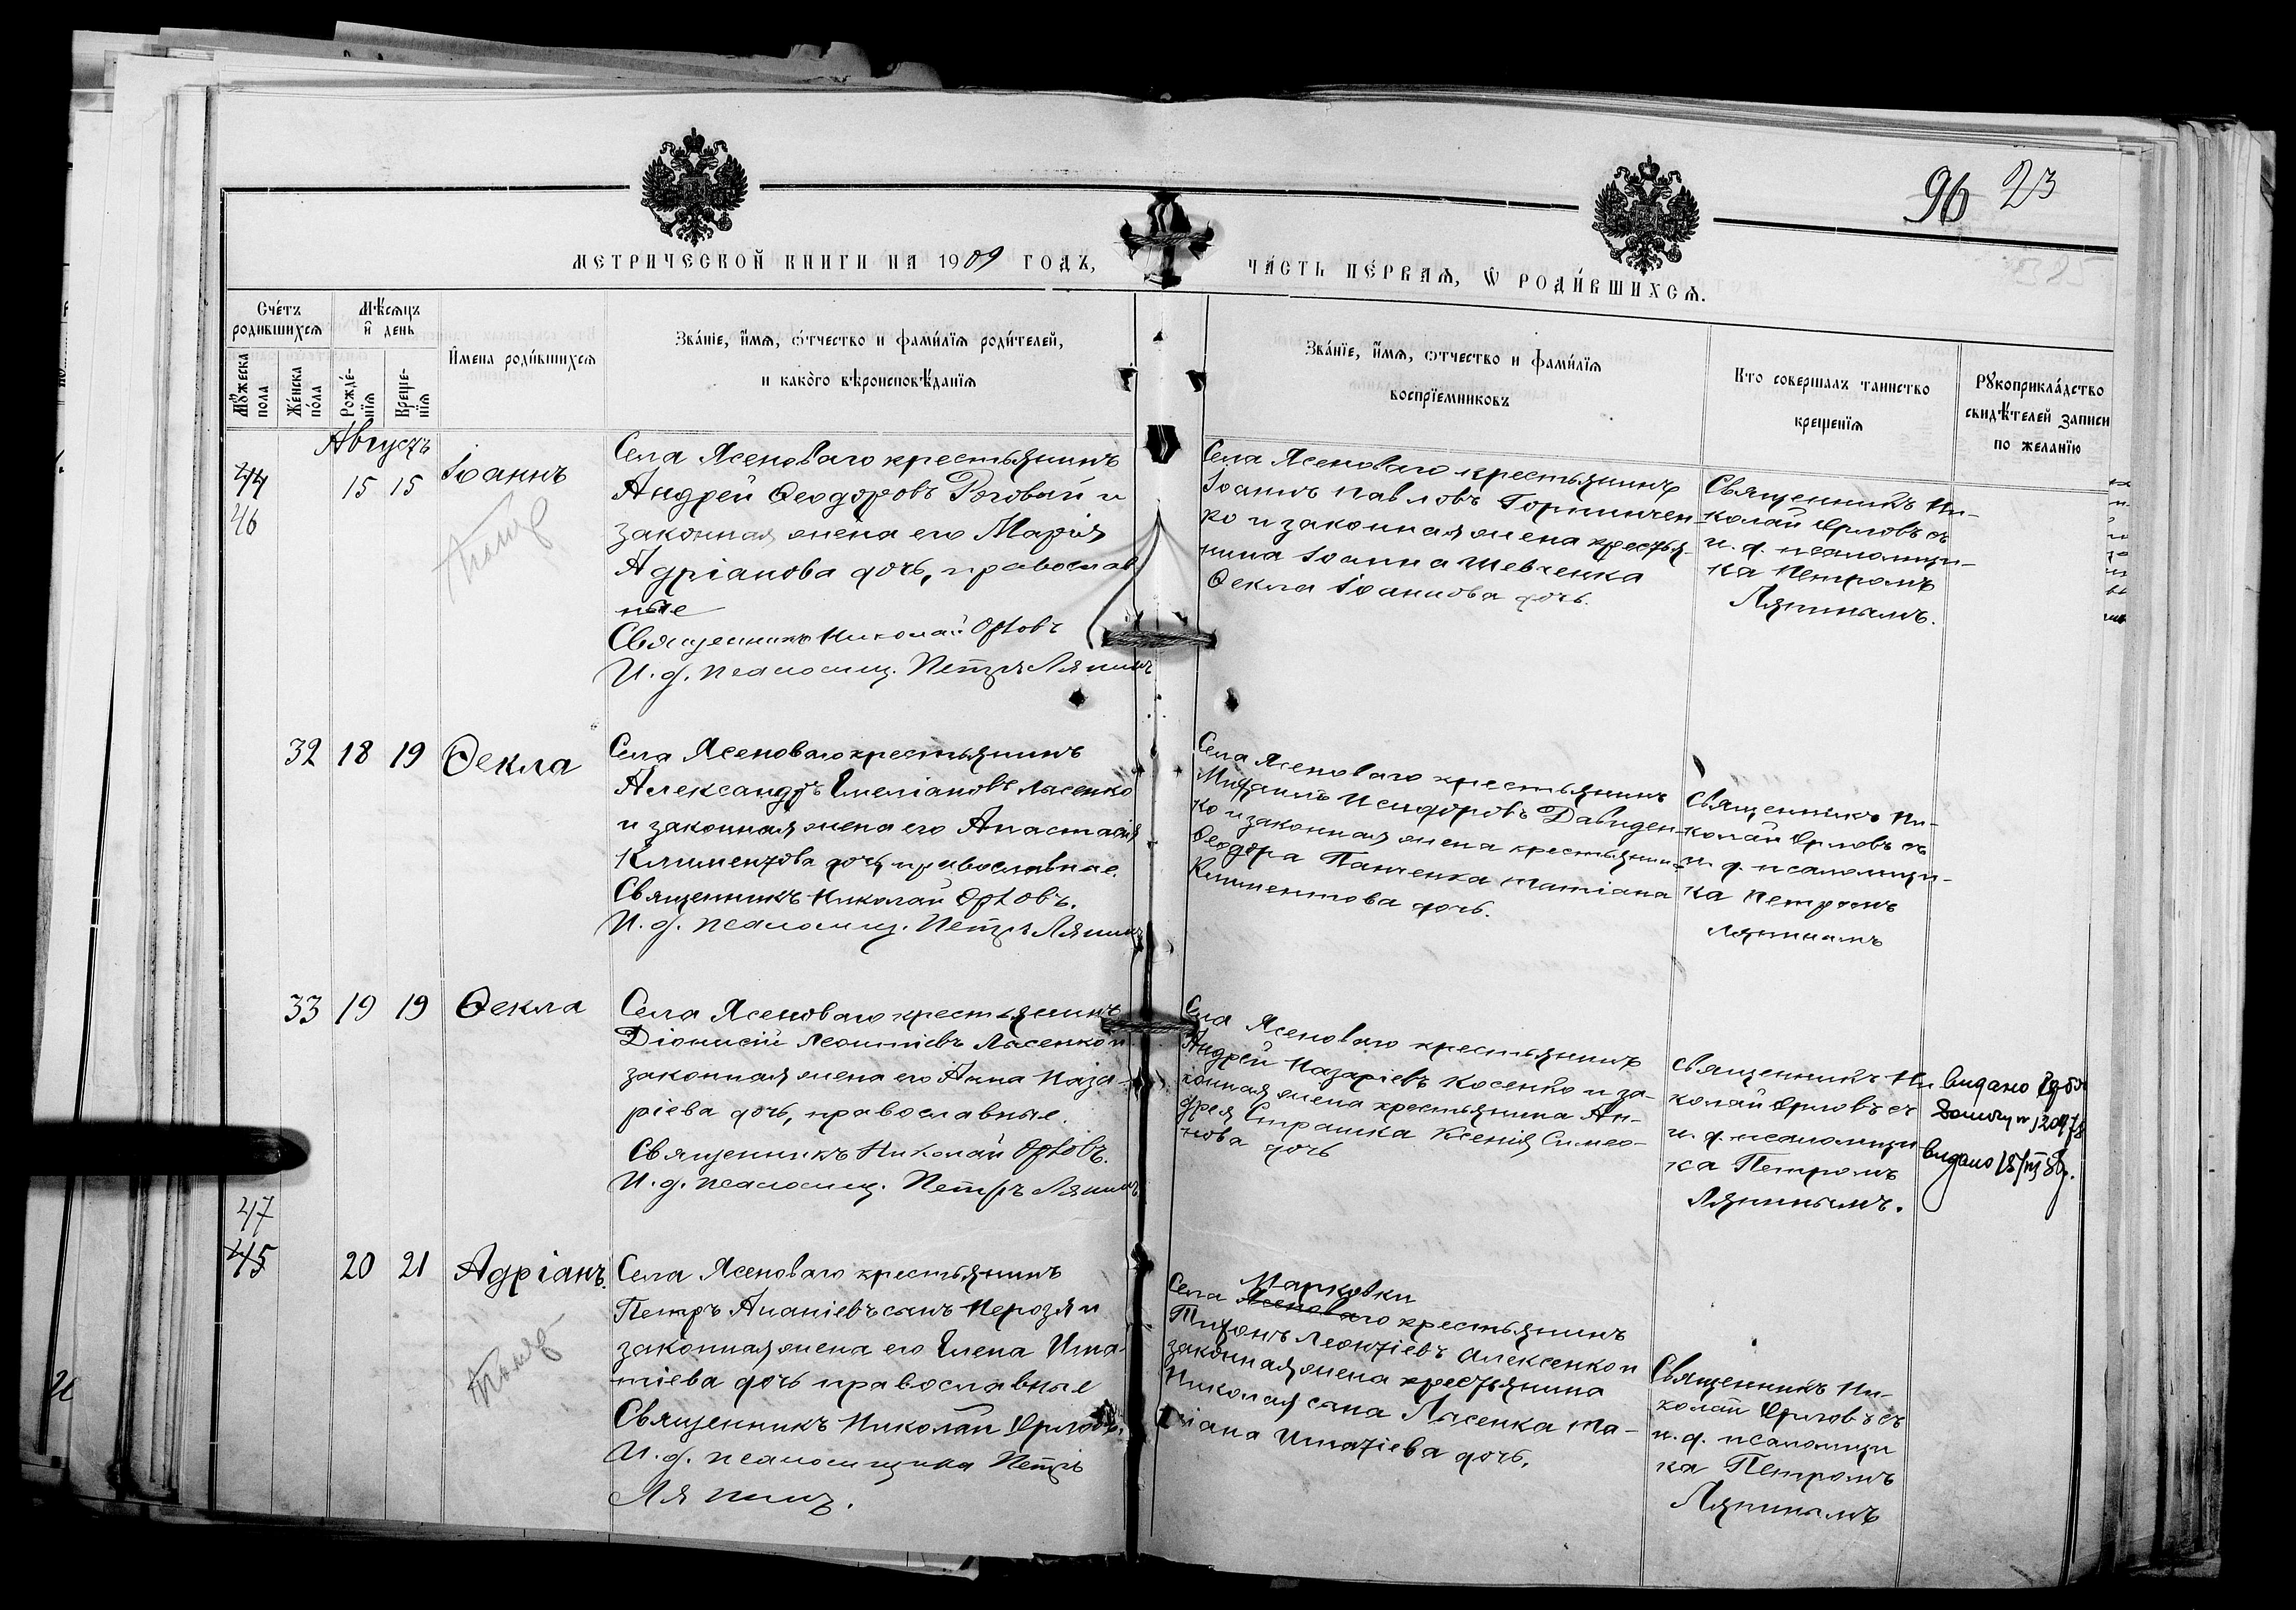 96 23
МЕТРИЧЕСКОЙ КНИГИ НА 1909 ГОДЪ,
ЧА́СТЬ ПЕ́РВАѦ, Ѡ РОДИ́ВШИХСѦ.
Сче́тъ родившихсѧ
Мѣ́сѧцъ и день
Мꙋжеска пола
Же́нска по́ла
Рожде́нїѧ
Креще́нїѧ
И҆мена роди́вшихсѧ
Зва́нїе, и҆́мѧ, ѻ҆́тчество и фами́лїѧ роди́телей,
и како́го вѣроисповѣ́данїѧ
Зва́нїе, и҆́мѧ, ѻ҆́тчество и фами́лїѧ
воспрїе́мниковъ
Кто соверша́лъ таинство
креще́нїѧ
Рꙋкоприкла́дство
свидѣ́телей записи
по жела́нїю
Августъ
44
46
15 15
Іоаннъ
Села Ясеноваго крестьянинъ
Андрей Ѳеодоровъ Роговый и
законная жена его Марія
Адріанова дочь, православ
ные
Священникъ Николай Орловъ
И. д. псаломщ. Петръ Ляпинъ
Села Ясеноваго крестьянинъ
Іоаннъ Павловъ Горпинчен-
ко и законная жена крестья-
нина Іоанна Шевченка
Ѳекла Іоаннова дочь.
Священникъ Ни-
колай Орловъ съ
и. д. псаломщи-
ка Петромъ
Ляпинымъ.
32 18 19 Ѳекла
Села Ясеноваго крестьянинъ
Александръ Емеліановъ Лысенко
и законная жена его Анастасія
Климентова дочь, православные.
Священникъ Николай Орловъ.
И. д. псаломщ. Петръ Ляпинъ
Села Ясеноваго крестьянинъ
Михаилъ Исидоровъ Давиден-
ко и законная жена крестьянина
Ѳеодора Панченка Татіана
Климентова дочь.
Священникъ Ни-
колай Орловъ съ
и. д. псаломщи-
ка Петромъ
Ляпинымъ
33 19 19 Ѳекла
Села Ясеноваго крестьянинъ
Діонисій Леонтіевъ Лысенко и
законная жена его Анна Наза-
ріева дочь, православные.
Священникъ Николай Орловъ.
И. д. псаломщ. Петръ Ляпинъ
Села Ясеноваго крестьянинъ
Андрей Назаріевъ Косенко и за-
конная жена крестьянина Ан-
дрея Страшка Ксенія Симео-
нова дочь
Священникъ Ни
колай Орловъ съ
и. д. псаломщи
ка Петромъ
Ляпинымъ.
видано
видано 18/III
47
45
20 21 Адріанъ.
Села Ясеноваго крестьянинъ
Петръ Ананіевъ сынъ Нерозя и
законная жена его Елена Игна-
тіева дочь православные
Священникъ Николай Орловъ.
И. д. псаломщика Петръ
Ляпинъ.
Марковки
Села Ясеноваго крестьянинъ
Тихонъ Леонтіевъ Алексенко и
законная жена крестьянина
Николая сына Лысенка Та-
тіана Игнатіева дочь.
Священникъ Ни-
колай Орловъ съ
и. д. псаломщи
ка Петромъ
Ляпинымъ